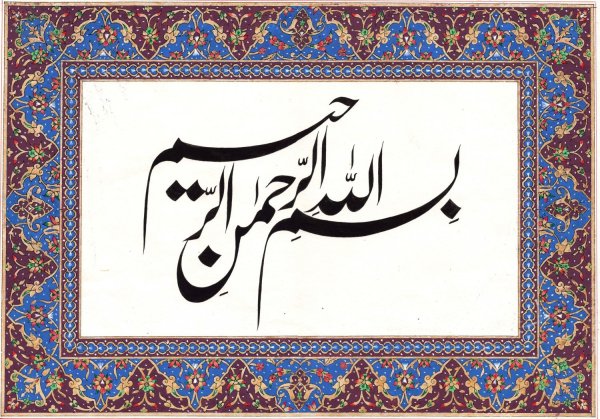 بِسمِ اللّٰهِ الرَّحمٰنِ الرَّحیم